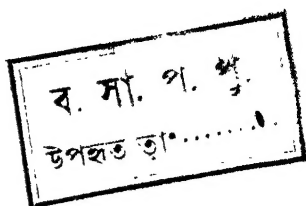 ব. সা. প. পু.
উপহৃত তা•.......